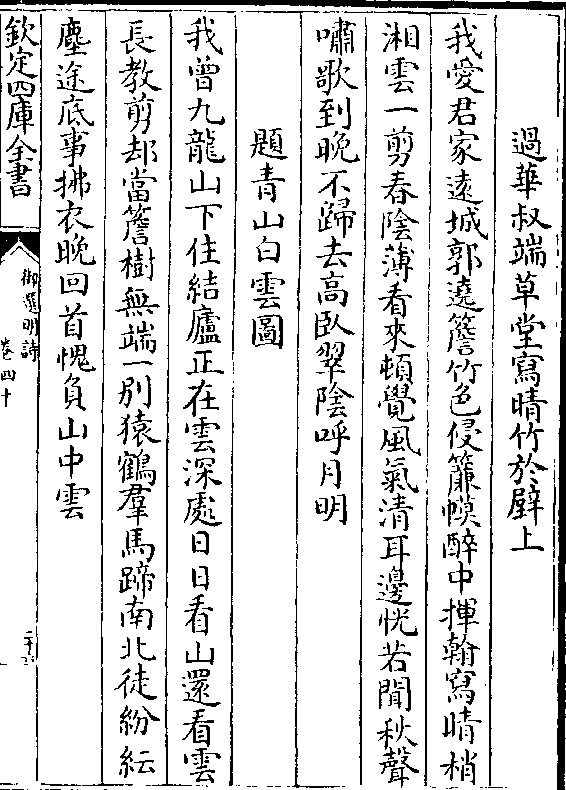 過華叔端草堂寫晴竹於壁上
我愛君家遠城郭遶簷竹色侵簾幙醉中揮翰寫晴梢
湘雲一剪春陰薄看來頓覺風氣清耳邊恍若聞秋聲
嘯歌到晚不歸去高臥翠陰呼月明
題青山白雲圖
我曾九龍山下住結廬正在雲深處日日看山還看雲
長教剪却當簷樹無端一別猿鶴羣馬蹄南北徒紛紜
塵途底事拂衣晚回首愧負山中雲
欽定四庫全書
御選明詩
卷四十